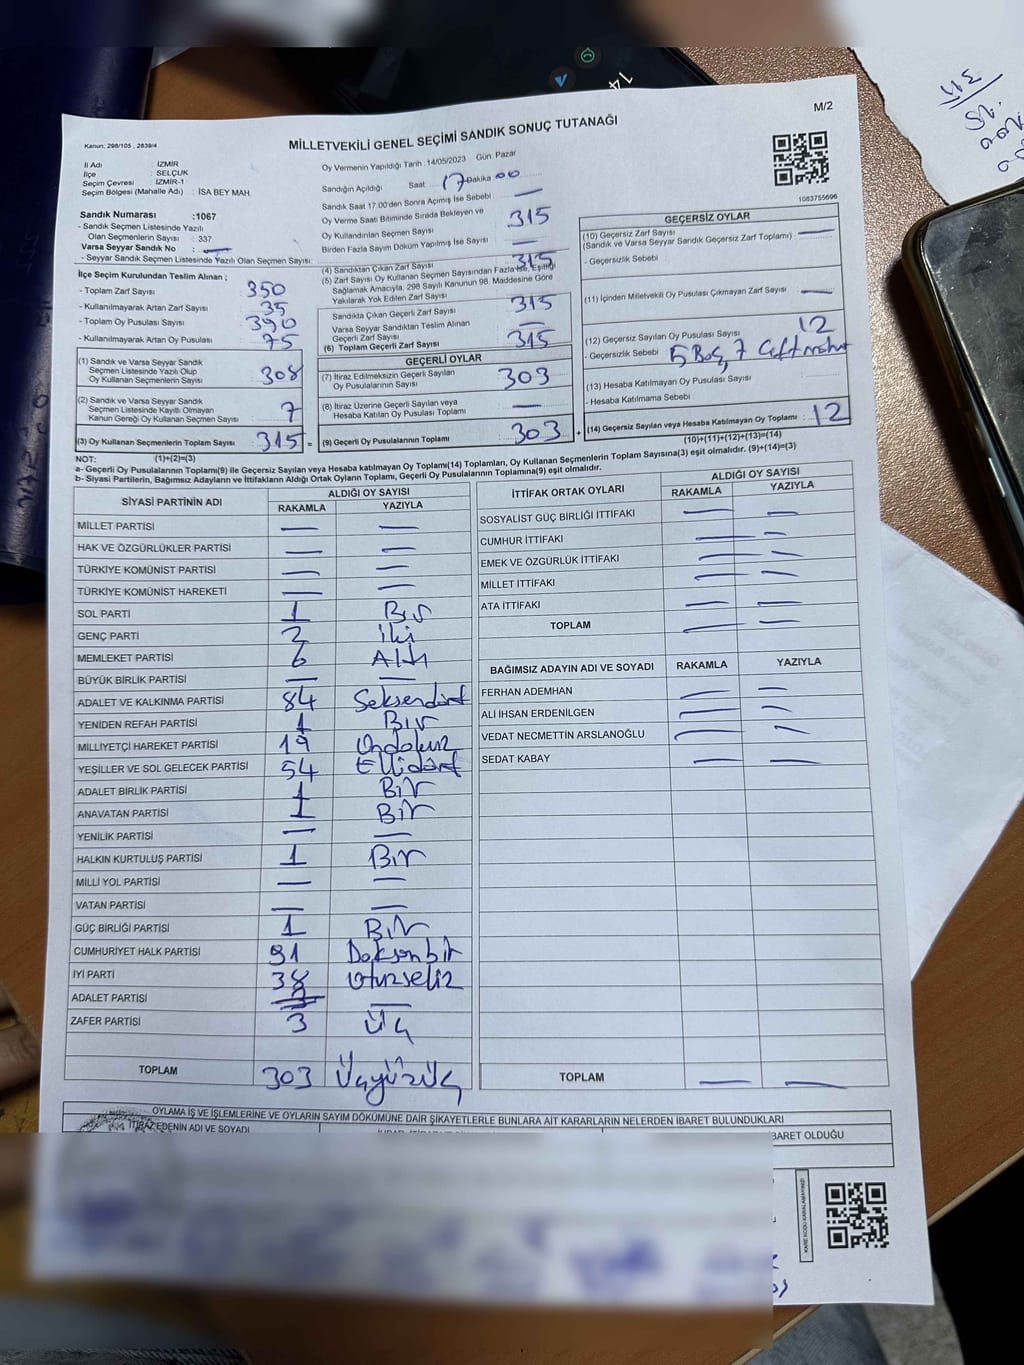 M/2
MİLLETVEKİLİ GENEL SEÇİMİ SANDIK SONUÇ TUTANAĞI
Kanun: 298/105 , 2839/4
İl Adı : İZMİR
İlçe : SELÇUK
Seçim Çevresi : İZMİR-1
Seçim Bölgesi (Mahalle Adı) : İSA BEY MAH.
Sandık Numarası :1067
- Sandık Seçmen Listesinde Yazılı
Olan Seçmenlerin Sayısı : 337
Varsa Seyyar Sandık No : —
- Seyyar Sandık Seçmen Listesinde Yazılı Olan Seçmen Sayısı:
Oy Vermenin Yapıldığı Tarih :14/05/2023 Gün: Pazar
Sandığın Açıldığı Saat 17 Dakika 00
Sandık Saat 17:00'den Sonra Açımış İse Sebebi —
Oy Verme Saati Bitiminde Sırada Bekleyen ve
Oy Kullandırılan Seçmen Sayısı 315
Birden Fazla Sayım Döküm Yapılmış İse Sayısı —
1083755696
İlçe Seçim Kurulundan Teslim Alınan ;
- Toplam Zarf Sayısı : 350
- Kullanılmayarak Artan Zarf Sayısı : 35
- Toplam Oy Pusulası Sayısı : 390
- Kullanılmayarak Artan Oy Pusulası : 75
(1) Sandık ve Varsa Seyyar Sandık
Seçmen Listesinde Yazılı Olup
Oy Kullanan Seçmenlerin Sayısı : 308
(2) Sandık ve Varsa Seyyar Sandık
Seçmen Listesinde Kayıtlı Olmayan
Kanun Gereği Oy Kullanan Seçmen Sayısı : 7
(3) Oy Kullanan Seçmenlerin Toplam Sayısı : 315 =
(1)+(2)=(3)
(4) Sandıktan Çıkan Zarf Sayısı 315
(5) Zarf Sayısı Oy Kullanan Seçmen Sayısından Fazla İse, Eşitliği
Sağlamak Amacıyla, 298 Sayılı Kanunun 98. Maddesine Göre
Yakılarak Yok Edilen Zarf Sayısı
Sandıkta Çıkan Geçerli Zarf Sayısı 315
Varsa Seyyar Sandıktan Teslim Alınan
Geçerli Zarf Sayısı —
(6) Toplam Geçerli Zarf Sayısı 315
GEÇERLİ OYLAR
(7) İtiraz Edilmeksizin Geçerli Sayılan
Oy Pusulalarının Sayısı : 303
(8) İtiraz Üzerine Geçerli Sayılan veya
Hesaba Katılan Oy Pusulası Toplamı : —
(9) Geçerli Oy Pusulalarının Toplamı : 303 +
GEÇERSİZ OYLAR
(10) Geçersiz Zarf Sayısı : —
(Sandık ve Varsa Seyyar Sandık Geçersiz Zarf Toplamı)
- Geçersizlik Sebebi :
(11) İçinden Milletvekili Oy Pusulası Çıkmayan Zarf Sayısı : —
(12) Geçersiz Sayılan Oy Pusulası Sayısı : 12
- Geçersizlik Sebebi : 5 Boş, 7 Çift mühür
(13) Hesaba Katılmayan Oy Pusulası Sayısı :
- Hesaba Katılmama Sebebi :
(14) Geçersiz Sayılan veya Hesaba Katılmayan Oy Toplamı : 12
(10)+(11)+(12)+(13)=(14)
NOT:
a- Geçerli Oy Pusulalarının Toplamı(9) ile Geçersiz Sayılan veya Hesaba katılmayan Oy Toplamı(14) Toplamları, Oy Kullanan Seçmenlerin Toplam Sayısına(3) eşit olmalıdır. (9)+(14)=(3)
b- Siyasi Partilerin, Bağımsız Adayların ve İttifakların Aldığı Ortak Oyların Toplamı, Geçerli Oy Pusulalarının Toplamına(9) eşit olmalıdır.
SİYASİ PARTİNİN ADI ALDIĞI OY SAYISI
RAKAMLA YAZIYLA
MİLLET PARTİSİ — —
HAK VE ÖZGÜRLÜKLER PARTİSİ — —
TÜRKİYE KOMÜNİST PARTİSİ — —
TÜRKİYE KOMÜNİST HAREKETİ — —
SOL PARTİ 1 Bir
GENÇ PARTİ 2 iki
MEMLEKET PARTİSİ 6 Altı
BÜYÜK BİRLİK PARTİSİ — —
ADALET VE KALKINMA PARTİSİ 84 Seksendört
YENİDEN REFAH PARTİSİ 1 Bir
MİLLİYETÇİ HAREKET PARTİSİ 19 Ondokuz
YEŞİLLER VE SOL GELECEK PARTİSİ 54 Ellidört
ADALET BİRLİK PARTİSİ 1 Bir
ANAVATAN PARTİSİ 1 Bir
YENİLİK PARTİSİ — —
HALKIN KURTULUŞ PARTİSİ 1 Bir
MİLLİ YOL PARTİSİ — —
VATAN PARTİSİ — —
GÜÇ BİRLİĞİ PARTİSİ 1 Bir
CUMHURİYET HALK PARTİSİ 91 Doksanbir
İYİ PARTİ 38 Otuzsekiz
ADALET PARTİSİ —
ZAFER PARTİSİ 3 Üç
TOPLAM 303 Üçyüzüç
İTTİFAK ORTAK OYLARI ALDIĞI OY SAYISI
RAKAMLA YAZIYLA
SOSYALİST GÜÇ BİRLİĞİ İTTİFAKI — —
CUMHUR İTTİFAKI — —
EMEK VE ÖZGÜRLÜK İTTİFAKI — —
MİLLET İTTİFAKI — —
ATA İTTİFAKI — —
TOPLAM — —
BAĞIMSIZ ADAYIN ADI VE SOYADI RAKAMLA YAZIYLA
FERHAN ADEMHAN — —
ALİ İHSAN ERDENİLGEN — —
VEDAT NECMETTİN ARSLANOĞLU — —
SEDAT KABAY — —
TOPLAM — —
OYLAMA İŞ VE İŞLEMLERİNE VE OYLARIN SAYIM DÖKÜMÜNE DAİR ŞİKAYETLERLE BUNLARA AİT KARARLARIN NELERDEN İBARET BULUNDUKLARI
İTİRAZ EDENİN ADI VE SOYADI
BARET OLDUĞU